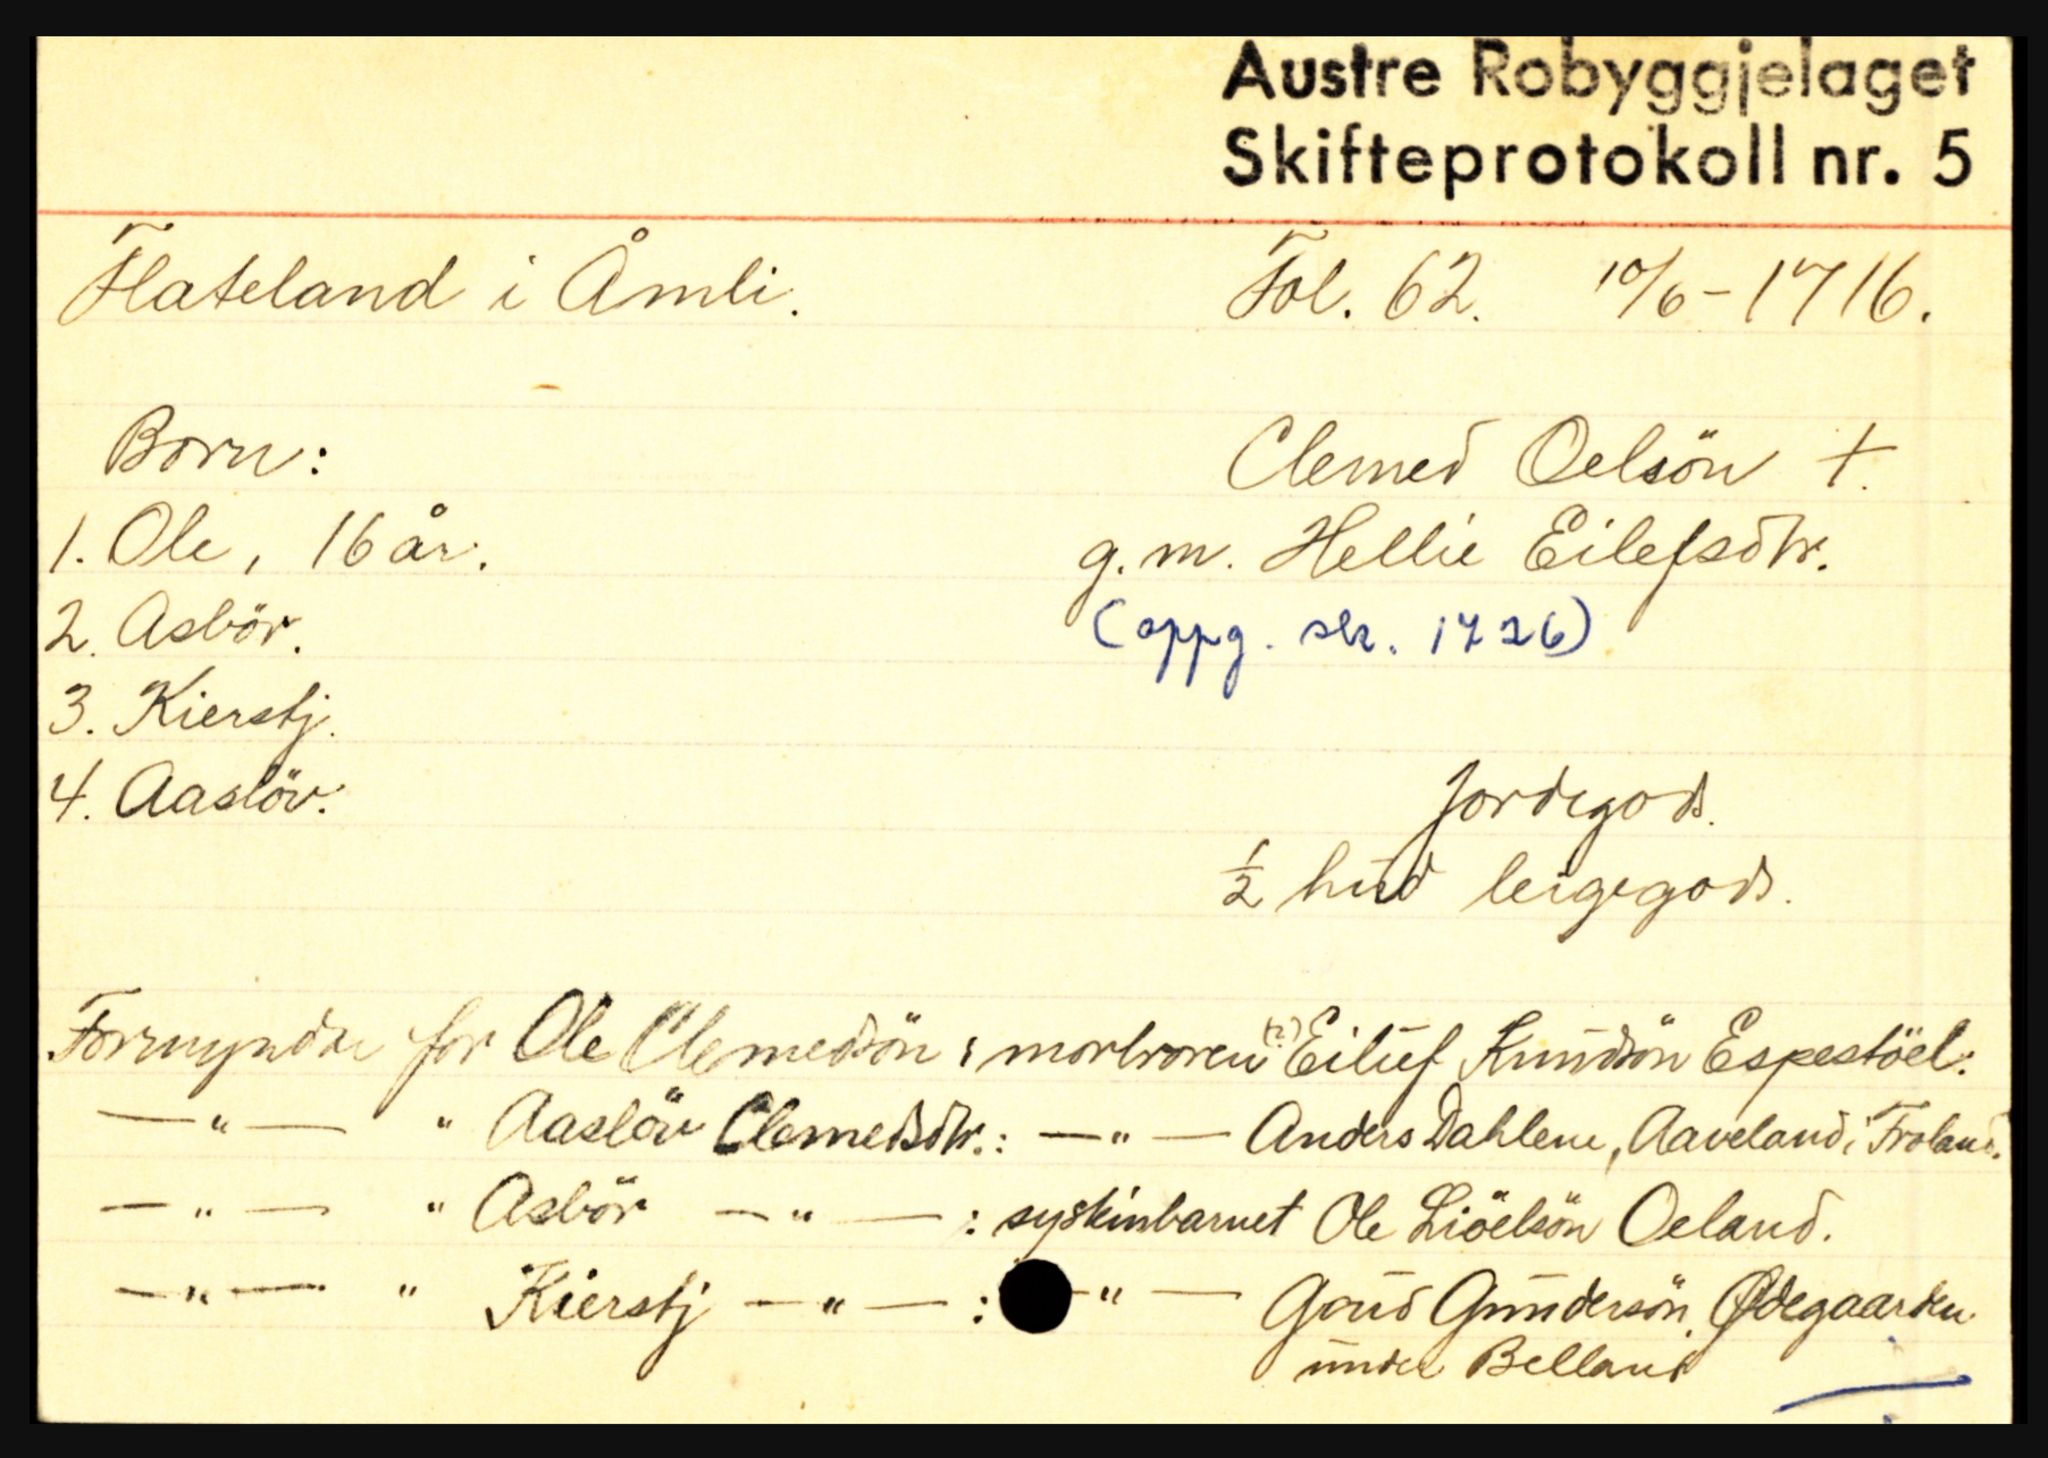 Austre Robyggjelaget
Skifteprotokoll nr. 5
Flateland i Åmli.
Fol. 62. 10/6-1716.
Born:
1. Ole, 16 år.
2. Asbör.
3. Kierstj.
4. Aaslöv.
Clemed Oelsön †.
g.m. Hellie Eilefsdtr.
(oppg. skr. 1726)
Jordegods.
½ hud leigegods.
Formyndar for Ole Clemedsön: morbroren (?) Eiluf Knudsön Espestöel:
—"— " Aaslöv Clemedsdtr.: —"— Anders Dahlene, Aaveland i Froland.
—"— " Asbör —"—: syskinbarnet Ole Liöelsön Oeland.
—"— " Kierstj —"—: —"— Goud Gundersön, Ødegaarden
under Belland